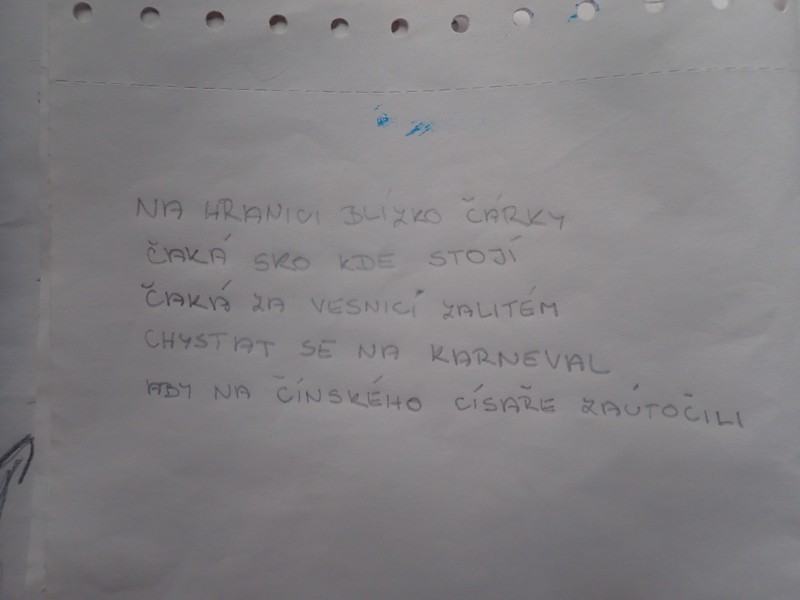 NA HRANICI BLÍZKO ČÁRKY
ČAKÁ SKO KDE STOJÍ
ČAKÁ ZA VESNICÍ ZALITÉM
CHYSTAT SE NA KARNEVAL
ABY NA ČÍNSKÉHO CÍSAŘE ZAÚTOČILI